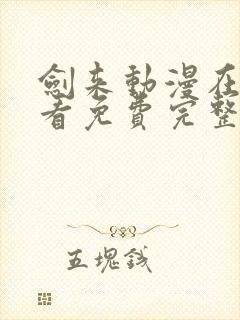 劍来動漫在
看免費完整
五塊錢